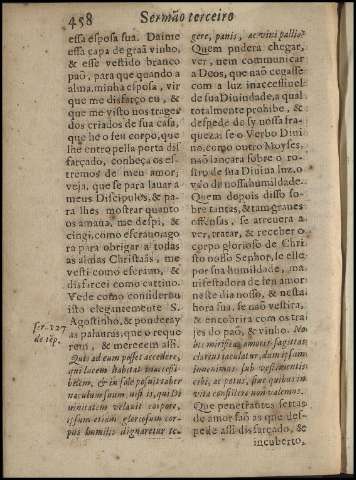 458
Sermão terceiro
essa esposa sua. Daime
essa capa de graã vinho,
& esse vestido branco
paõ, para que quando a
alma, minha esposa, vir
que me disfarço eu, &
que me visto nos trages
dos criados de sua casa,
que he o seu corpo, que
lhe entro pella porta dis
farçado, conheça os es-
tremos de meu amor,
veja, que se para lauar a
meus Discipulos, & pa-
ra lhes mostrar quanto
os amaua, me despi, &
cingi, como escrauo, ago
ra para obrigar a todas
as almas Christaãs, me
vesti como escrauo, &
disfarcei como cattiuo.
Vede como considerou
isto elegantemente S.
Agostinho, & ponderay
as palauras, que o reque
rem, & merecem assi.
ser. 127
de tẽp.
Quis ad eum posset accedere,
qui lucem habitat inaccessi-
bilem, & in sole posuit taber
naculum suum, nisi is, qui Di
uinitatem velauit corpore,
ipsum etiam gloriosum cor-
pus humilis dignaretur te-
gere, panis, ac vini pallio?
Quem pudera chegar,
ver, nem communicar
a Deos, que não cegasse
com a luz inaccessiuel
de sua Diuindade, a qual
totalmente prohibe, &
despede de sy nossa fra-
queza: se o Verbo Diui
no, como outro Moyses,
não lançara sobre o ro-
stro de sua Diuina luz, o
véo de nossa humildade.
Quem depois disso so-
bre tantas, & tam graues
offensas, se atreuera a
ver, tratar, & receber o
corpo glorioso de Chri
sto nosso Senhor, se elle
por sua humildade, ma-
nifestadora de seu amor
neste dia nosso, & nesta
hora sua, se não vestira,
& encobrira com os tra
jes do paõ, & vinho.
clarius iaculatur, dum ipsum
inuenimus sub vestimentis
cibi, ac potus, sine quibus in
vita consistere non valemus.
Que penetrantes sertas
de amor saõ as que des-
pede assi disfarçado, &
incuberto,